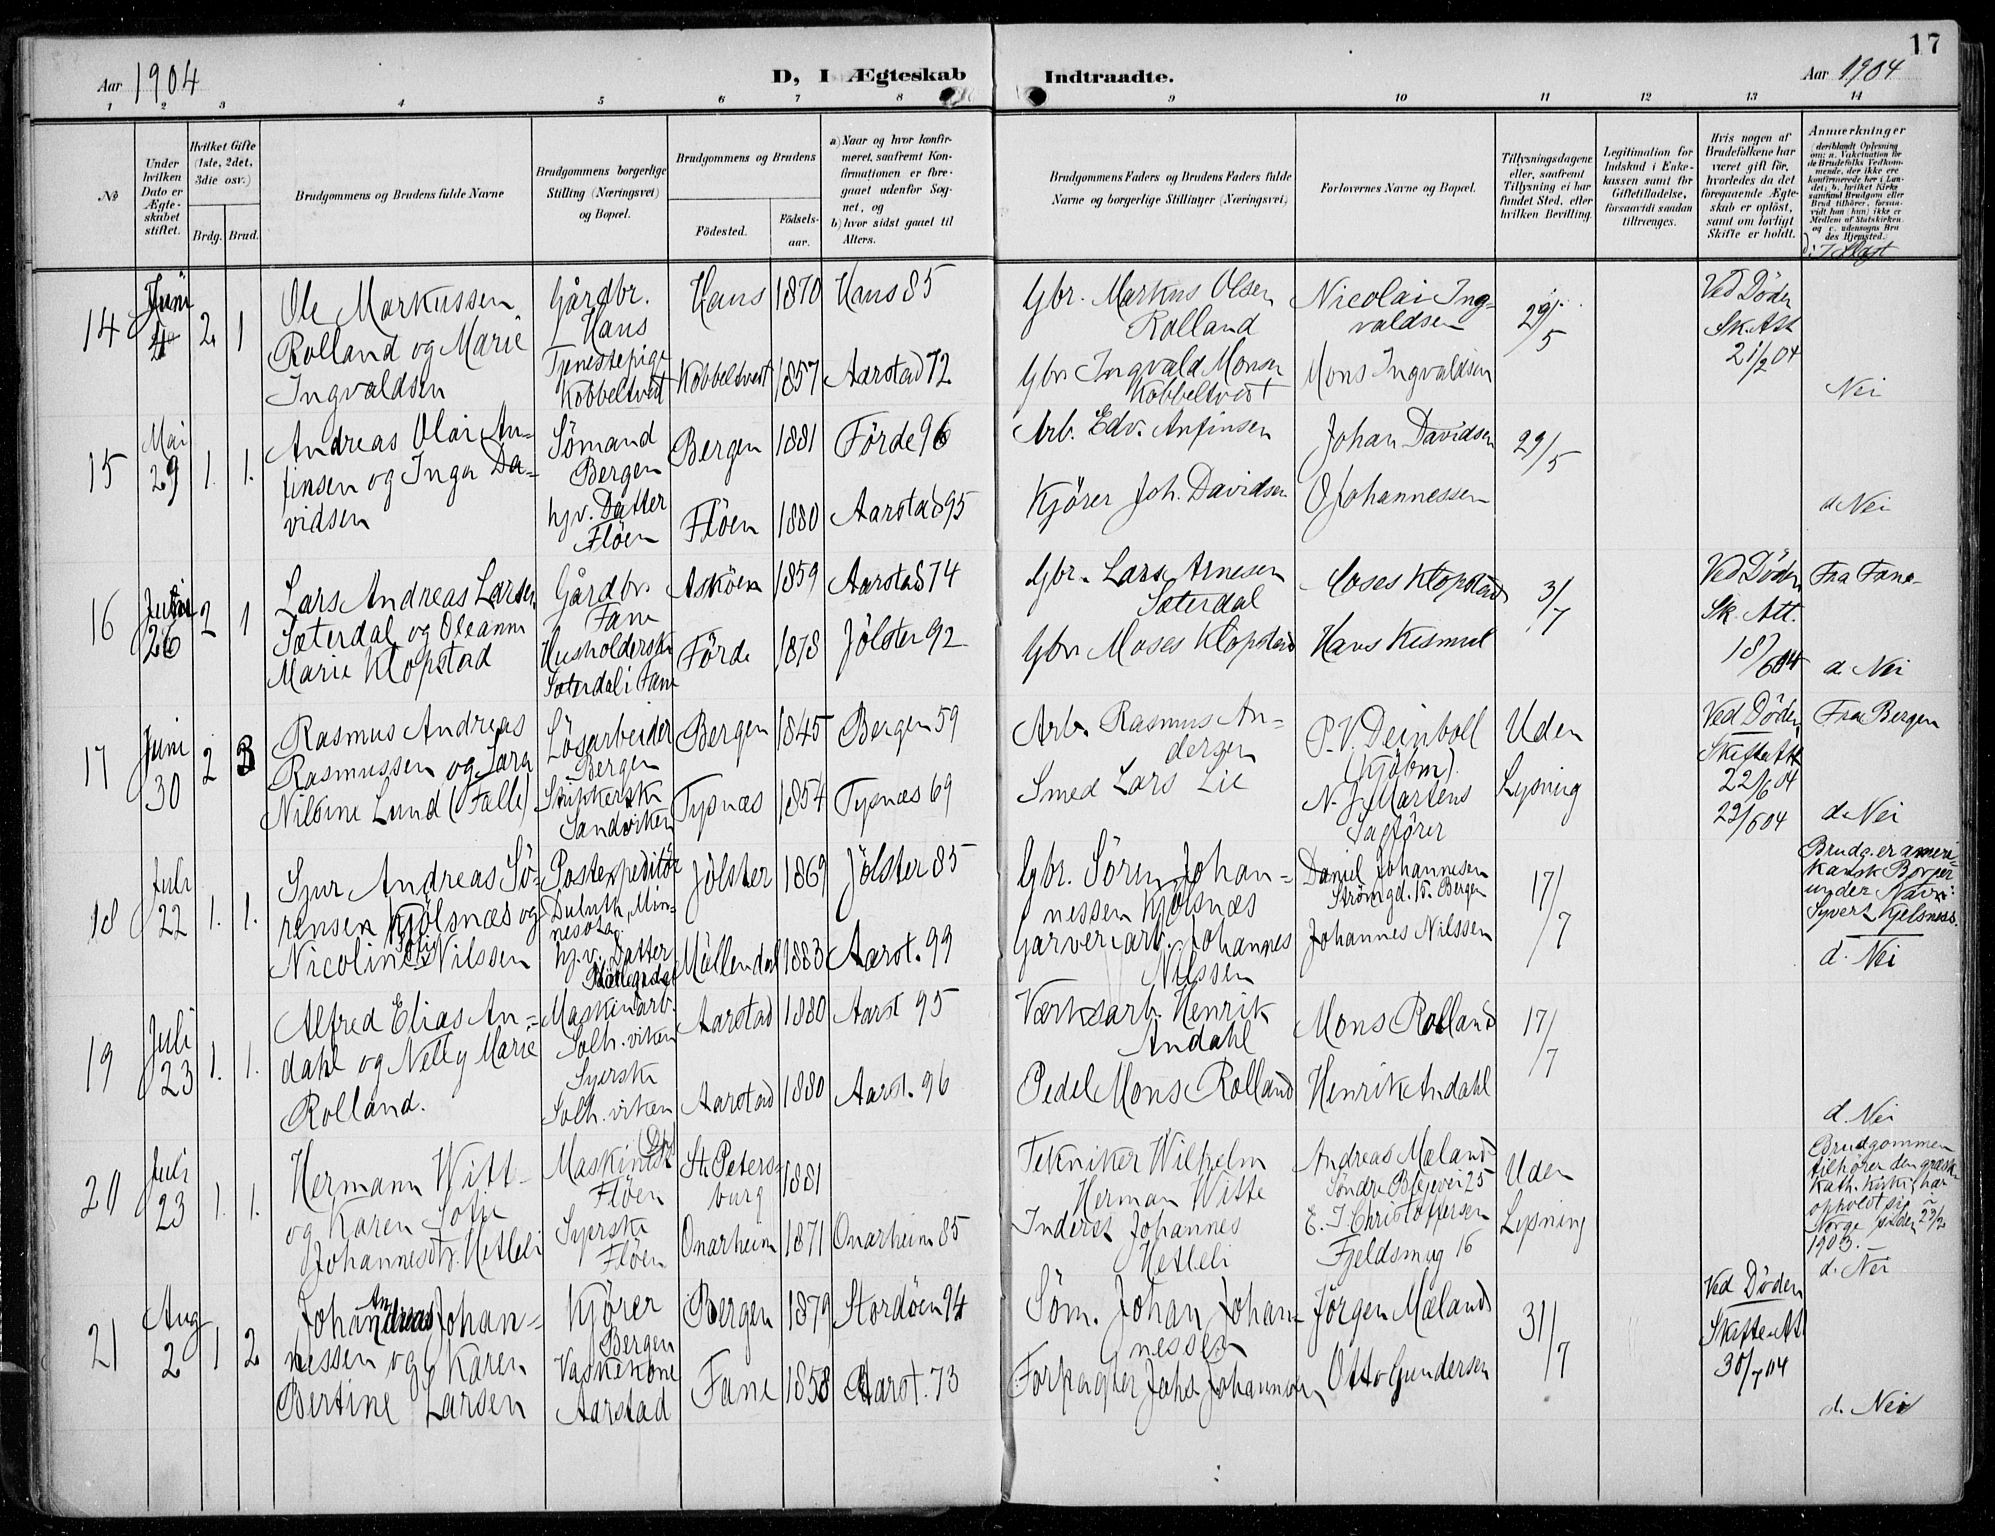 17
Aar 1904
D, I Ægteskab
Indtraadte.
Aar 1904
1 2 3 4 5 6 7 8 9 10 11 12 13 14
No
Under hvilken Dato er Ægteskabet stiftet.
Hvilket Gifte (1ste, 2det, 3die osv.)
Brdg. Brud.
Brudgommens og Brudens fulde Navne
Brudgommens borgerlige Stilling (Næringsvei) og Bopæl.
Brudgommens og Brudens
Födested.
Födselsaar.
a) Naar og hvor konfirmeret, saafremt Konfirmationen er foregaaet udenfor Sognet, og
b) hvor sidst gaaet til Alters.
Brudgommens Faders og Brudens Faders fulde Navne og borgerlige Stillinger (Næringsvei)
Forlovernes Navne og Bopæl.
Tillysningsdagene eller, saafremt Tillysning ei har fundet Sted, efter hvilken Bevilling.
Legitimation for Indskud i Enkekassen samt for Giftetilladelse, forsaavidt saadan tiltrænges.
Hvis nogen af Brudefolkene har været gift før, hvorledes da det foregaaende Ægteskab er opløst, samt om lovligt Skifte er holdt.
Anmerkninger
14 Juni 4 2. 1
Ole Markussen
Rolland og Marie
Ingvaldsen
Gårdbr.
Haus
Tjenestepige
Kobbeltvedt
Haus 1870 Haus 85
Kobbeltvedt 1857 Aarstad 72
Gbr. Markus Olsen
Rolland
Gbr Ingvald Monsen
Kobbeltvedt
Nicolai Ing-
valdsen
Mons Ingvaldsen
29/5
Ved Døden
Sk. Att
21/2 04
Nei
15 Mai 29 1. 1.
Andreas Olai An-
finsen og Inga Da-
vidsen
Sömand
Bergen
hjv. Datter
Flöen
Bergen 1881 Förde 96
Flöen 1880 Aarstad 95
Arb. Edv. Anfinsen
Kjörer Joh. Davidsen
Johan Davidsen
O Johannessen
29/5
d Nei
16 26 2 1
Lars Andreas Larsen
Sæterdal og Oleanna
Marie Klopstad
Gårdbr
Fane
Husholderske
Sæterdal i Fane
Asköen 1859 Aarstad 74
Förde 1878 Jölster 92
Gbr. Lars Arnesen
Sæterdal
Gbr Moses Klopstad
Moses Klopstad
Hans Kismul
3/7
Ved Døden
Sk. Att.
18/6 04
Fra Fane
d. Nei
17 Juni 30 2 3
Rasmus Andreas
Rasmussen og Sara
Nilsine Lund (Falle)
Lösarbeider
Bergen
Sandviken
Bergen 1845 Bergen 59
Tysnæs 1854 Tysnæs 69
Arb. Rasmus An-
dersen
Smed Lars Lie
P. V. Deinboll
(Kjöbm)
N. J. Martens
Sagförer
Uden
Lysning
Ved Døden
Skifte Att
22/6 04
23/6 04
Fra Bergen
d. Nei
18 Juli 22 1. 1.
Sjur Andreas Sö-
rensen Kjölsnæs og
Nicoline Sofie Nilssen
Postexpeditör
Duluth, Min-
nesota.
hjv. Datter
Jölster 1869 Jölster 85
Möllendal 1883 Aarst. 99
Gbr. Sören Johan-
nessen Kjölsnæs
Garveriarb. Johannes
Nilssen
Daniel Johannesen
Strömgd. 15. Bergen
Johannes Nilssen
17/7
Brudg. er ameri-
kansk Borger
under Navn
Syvert Kjelsness.
d. Nei
19 Juli 23 1. 1.
Alfred Elias An-
dahl og Nelly Marie
Rolland.
Maskinarb.
Solh. viken
Syerske
Solh. viken
Aarstad 1880 Aarst 95
Aarstad 1880 Aarst. 96
Værksarb. Henrik
Andahl
Pedel Mons Rolland
Mons Rolland
Henrik Andahl
17/7
d. Nei
20 Juli 23 1. 1.
Hermann Witt-
og Karen Sofie
Johannesdtr. Hetleli
Maskinist
Flöen
Syerske
Flöen
St. Peters-
burg 1881
Onarheim 1871 Onarheim 85
Tekniker Wilhelm
Herman Witte
Inderst Johannes
Hetleli
Andreas Mæland
Söndre Blegevei 25
E. J. Christoffersen
Fjeldsmug 16
Uden
Lysning
Brudgommen
tilhører den græsk
kath. kirke, har
opholdt sig i
Norge siden 23/2
1903.
d. Nei
21 Aug 2 1 2
Johan Andreas Johan-
nessen og Karen
Bertine Larsen
Kjörer
Bergen
Vaskekone
Aarstad
Bergen 1879 Stordöen 94
Fane 1858 Aarst. 73
Söm. Johan Johan-
nessen
Forpagter Johs. Johannesen
Jörgen Mæland
Otto Gundersen
31/7
Ved Døden
Skifte At
30/7 04
d. Nei